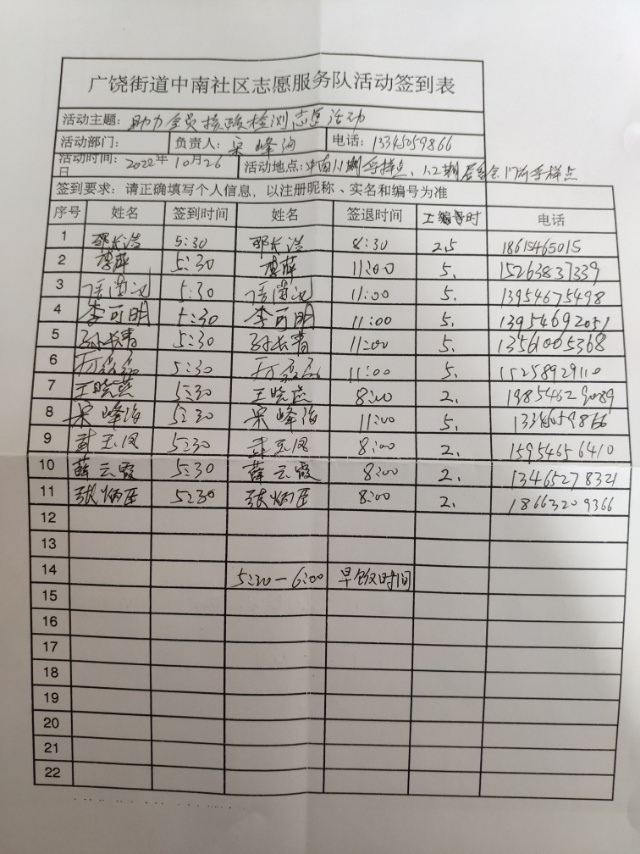 广饶街道中南社区志愿服务队活动签到表
活动主题：助力全员核酸检测志愿活动
活动部门： 负责人：宋峰海 电话：13345059866
活动时间：2022年10月26日 活动地点：中南1期采样点、1.2期居委会门前采样点
签到要求：请正确填写个人信息，以注册昵称、实名和编号为准
序号 姓名 签到时间 姓名 签退时间 工时 电话
1 邵长浩 5:30 邵长浩 8:30 2.5 18615465015
2 李萍 5:30 李萍 11:00 5. 15263837339
3 5:30 11:00 5. 13954675498
4 李可明 5:30 李可明 11:00 5. 13954692051
5 孙长青 5:30 孙长青 11:00 5. 13561005368
6 5:30 11:00 5. 15258929110
7 王晓燕 5:30 王晓燕 8:00 2.
8 宋峰海 5:30 宋峰海 11:00 5. 13345059866
9 武玉凤 5:30 武玉凤 8:00 2. 15954656410
10 薛云霞 5:30 薛云霞 8:00 2. 13465278321
11 张炳臣 5:30 张炳臣 8:00 2. 18663209366
12
13
14 5:30—6:00 早饭时间
15
16
17
18
19
20
21
22